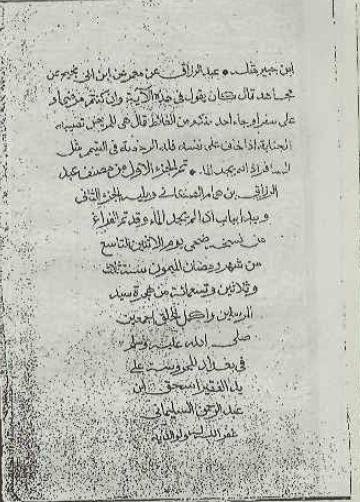 ابن جبير مثله • عبد الرزاق عن معمر عن ابن ابي نجيح عن
مجاهد قال كان يقول في هذه الآية وان كنتم مرضى او
على سفر او جاء احد منكم من الغائط قال هي للمريض تصيبه
الجنابة اذا خاف على نفسه فله الرخصة في التيمم مثل
المسافر اذا لم يجد الماء • تم الجزء الاول من مصنف عبد
الرزاق بن همام الصنعاني ويليه الجزء الثاني
وبدا بباب اذا لم يجد الماء وقد تم الفراغ
من نسخه ضحى يوم الاثنين التاسع
من شهر رمضان الميمون سنة ثلاث
وثلاثين وتسعمائة من هجرة سيد
المرسلين واكمل الخلق اجمعين
صلى الله عليه وسلم
في بغداد المحروسة على
يد الفقير اسحق ابن
عبد الرحمن السليماني
غفر الله له ولوالديه